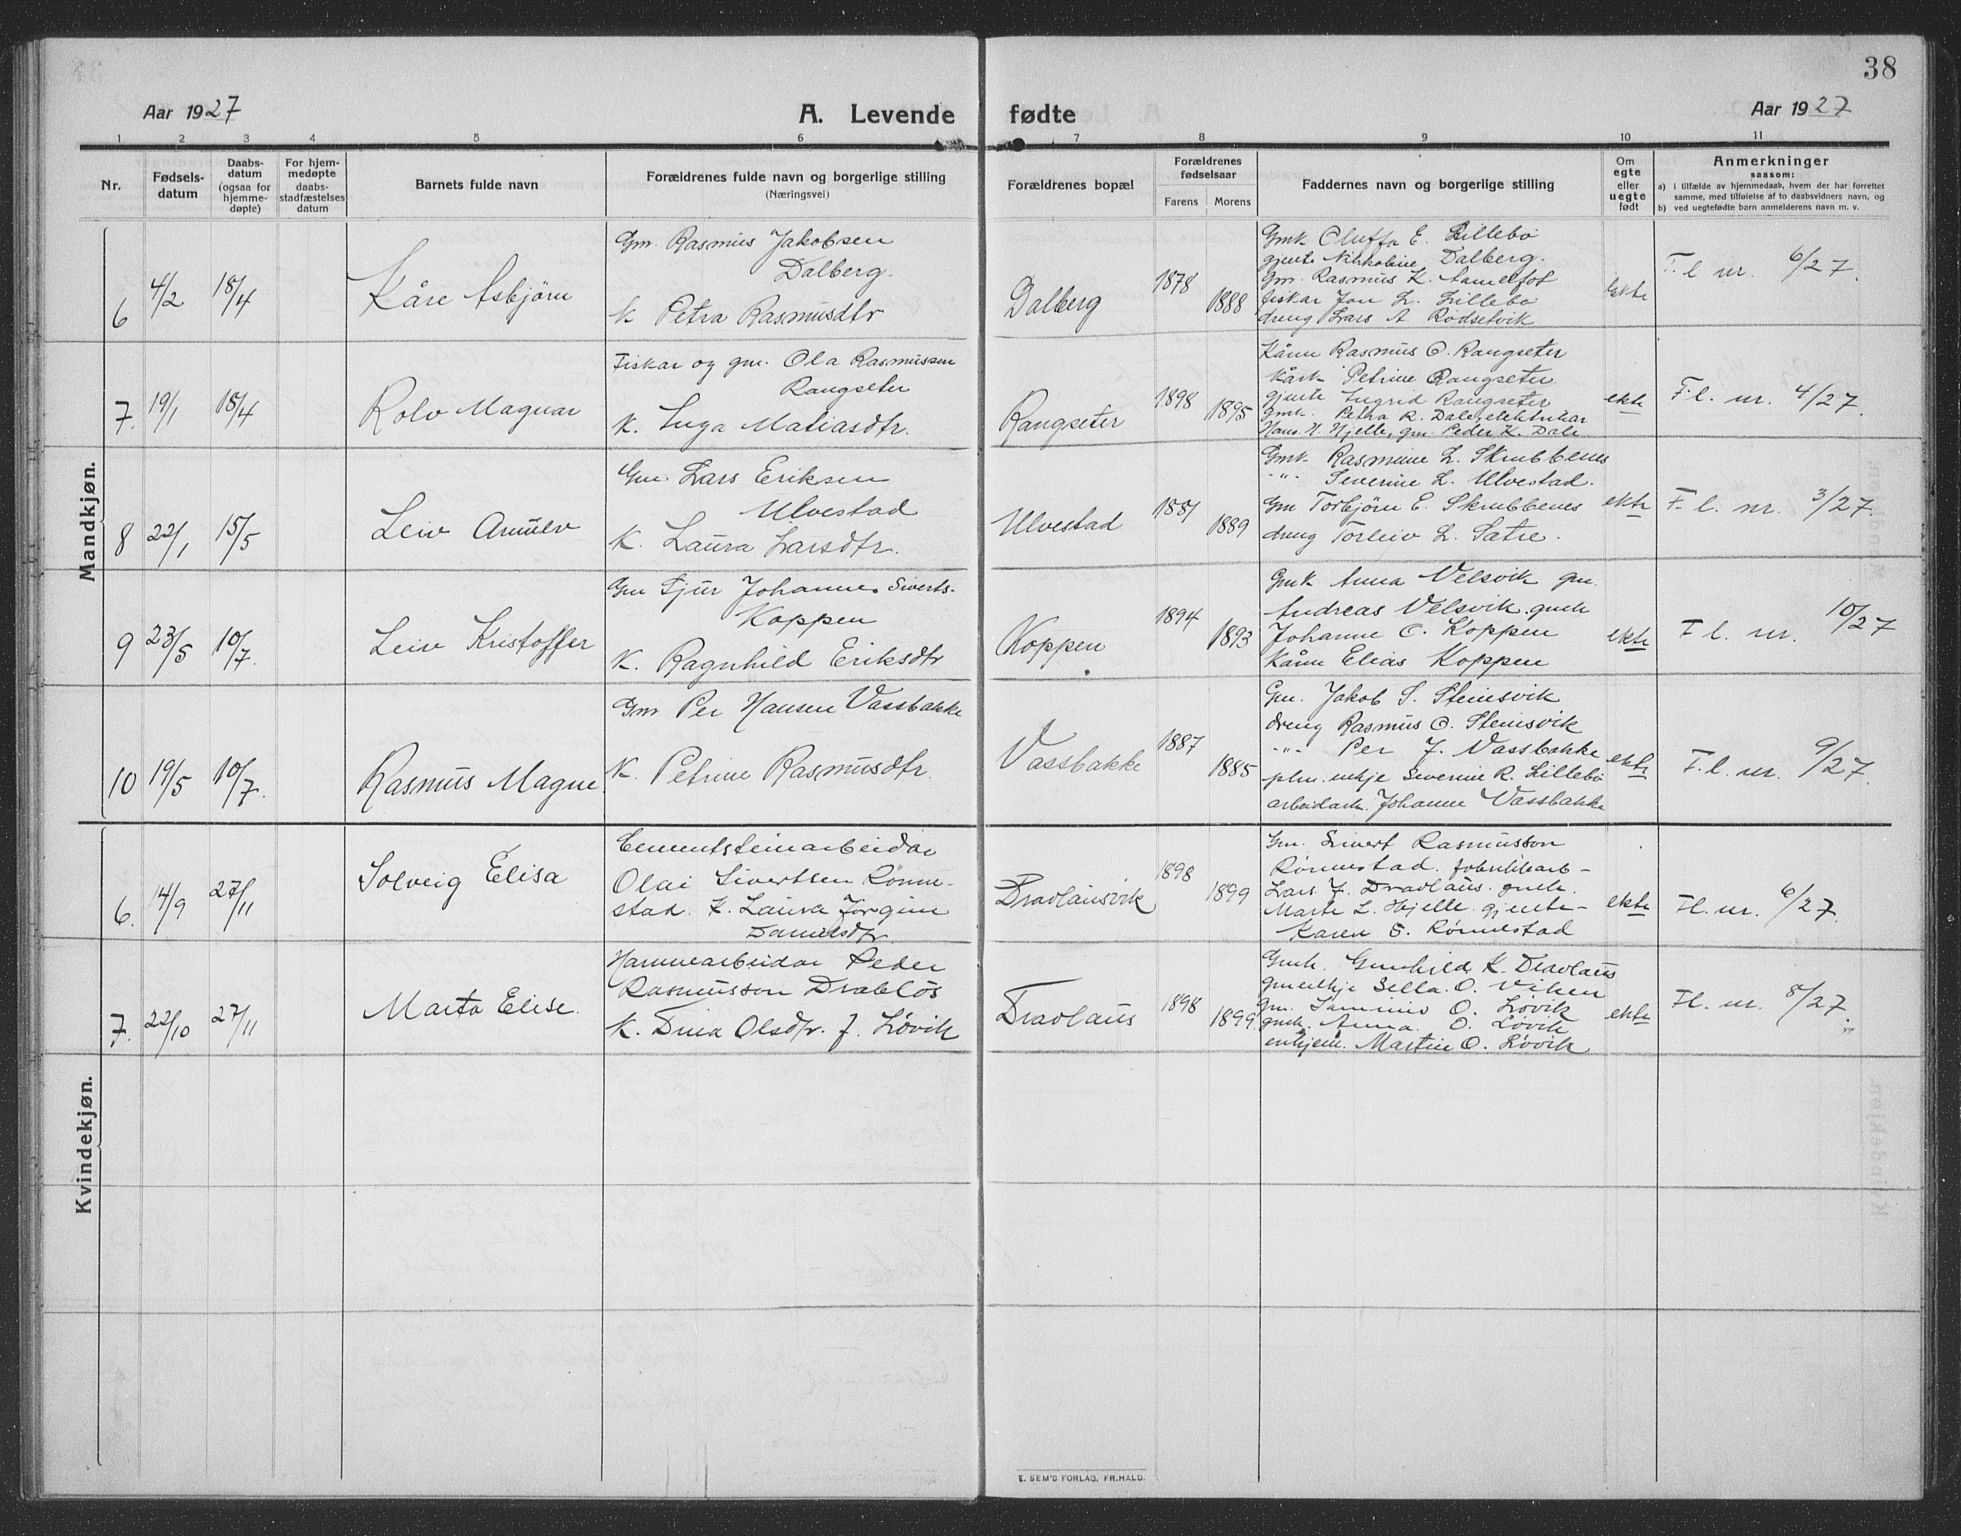 38
Aar 1927 A. Levende fødte Aar 1927
1 2 3 4 5 6 7 8 9 10 11
Nr.
Fødsels-
datum
Daabs-
datum
(ogsaa for
hjemme-
døpte)
For hjem-
medøpte
daabs-
stadfæstelses
datum
Barnets fulde navn
Forældrenes fulde navn og borgerlige stilling
(Næringsvei)
Forældrenes bopæl
Forældrenes
fødselsaar
Farens Morens
Faddernes navn og borgerlige stilling
Om
egte
eller
uegte
født
Anmerkninger
saasom:
a) i tilfælde av hjemmedaab, hvem der har forrettet
samme, med tilføielse af to daabsvidners navn, og
b) ved uegtefødte barn anmelderens navn m. v.
Mandkjøn.
6 4/2 18/4 Kåre Asbjörn
Gm. Rasmus Jakobsen
Dalberg.
K. Petra Rasmusdtr
Dalberg 1878 1888
Gmk Oluffa E. Lillebö
gjente Dalberg.
Gm. Rasmus K. Aamelfot
fiskar Jon L. Lillebö
dreng Lars A Rödsetvik
ekte F. l. nr. 6/27.
7. 19/1 18/4 Rolv Magnar
Fiskar og gm. Ola Rasmussen
Rangseter
K. Inga Matiasdtr.
Rangseter 1898 1895
Kårm Rasmus O. Rangseter
Kårk Petrine Rangseter
gjente Ingrid Rangseter
Gmk. Petra R. Dale, elektrikar
Hans N. Hjelle, gm. Peder K. Dale
ekte F. l. nr. 4/27.
8 22/1 15/5 Leiv
Gm. Lars Eriksen
Ulvestad
K. Laura Larsdtr.
Ulvestad 1881 1889
Gmk Rasmine L. Skrubbenes
-"- Severine L. Ulvestad.
Gm Torbjörn E. Skrubbenes
dreng Torleiv L. Sætre.
ekte F. l. nr. 3/27.
9 23/5 10/7. Leiv Kristoffer
Gm Sjur Johannes Siverts.
Koppen
K. Ragnhild Eriksdtr
Koppen 1894 1893
Gmk Anna Velsvik gm
Andreas Velsvik. gmk
Johanne O. Koppen
Kårm Elias Koppen
ekte F l. nr. 10/27
10 19/5 10/7. Rasmus Magne
Gm Per Hansen Vassbakke
K. Petrine Rasmusdtr.
Vassbakke 1887 1885
Gm. Jakob S. Steinsvik
dreng Rasmus O. Steinsvik
-"- Per J. Vassbakke
plm. enkje Severine R. Lillebö
arbeidark. Johanne Vassbakke
ekte F. l. nr. 9/27.
Kvindekjøn.
6. 14/9 27/11 Solveig Elisa
Cementsteinarbeidar
Olai Sivertsen Rönne-
stad. K. Laura Jörgine
Danielsdtr.
Dravlausvik 1898 1899
Gm. Sivert Rasmusson
Rönnestad. fabrikkarb-
Lars J. Dravlaus. gmk.
Marte L. Hjelle. gjente-
Karen S. Rönnestad
ekte Fl. nr. 6/27.
7. 22/10 27/11 Marta Elise.
Hamnearbeidar Peder
Rasmusson Drablös
K. Tina Olsdtr. f. Lövik
Dravlaus 1898 1899
Gmk. Gunhild K. Dravlaus
gmenkje Sella. O. Viken
Gm. O. Lövik
gmk. Anna. O. Lövik
Martin O. Lövik
ekte Fl. nr. 8/27.
E. SEM'S FORLAG, FR.HALD.